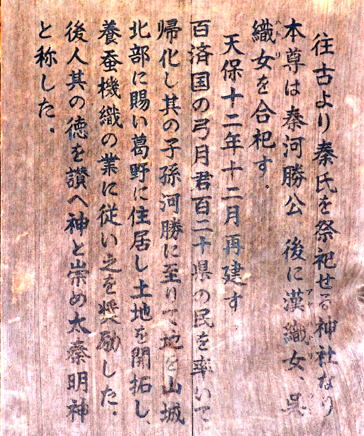 往古より秦氏を祭祀せる神社なり
本尊は秦河勝公 後に漢織女、呉
織女を合祀す。
天保十二年十二月再建す
百済国の弓月君百二十県の民を率いて
帰化し其の子孫河勝に至りて地を山城
北部に賜い葛野に住居し土地を開拓し、
養蚕機織の業に従い之を奨励した。
後人其の徳を讃へ神と崇め太秦明神
と称した。